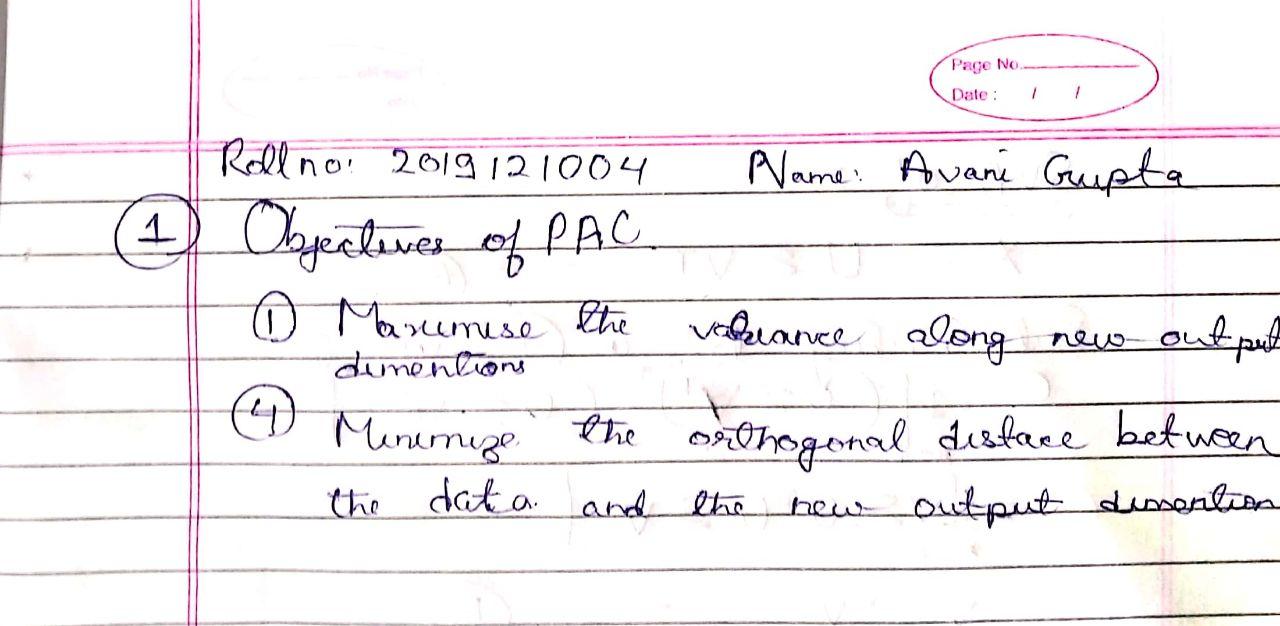 Page No.
Date : / /
Roll no: 2019121004 Name: Avani Gupta
1 Objectives of PAC
1 Maximise the variance along new output
dimentions
4 Minimize the orthogonal distace between
the data and the new output dimention